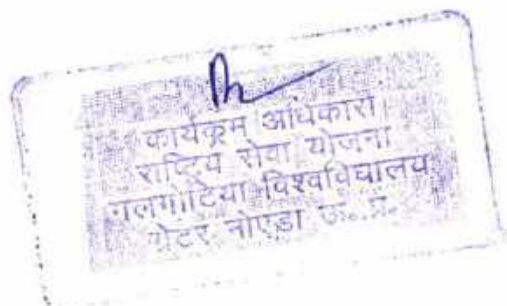 कार्यक्रम अधिकारी
राष्ट्रिय सेवा योजना
गलगोटिया विश्वविद्यालय
ग्रेटर नोएडा उ. प्र.